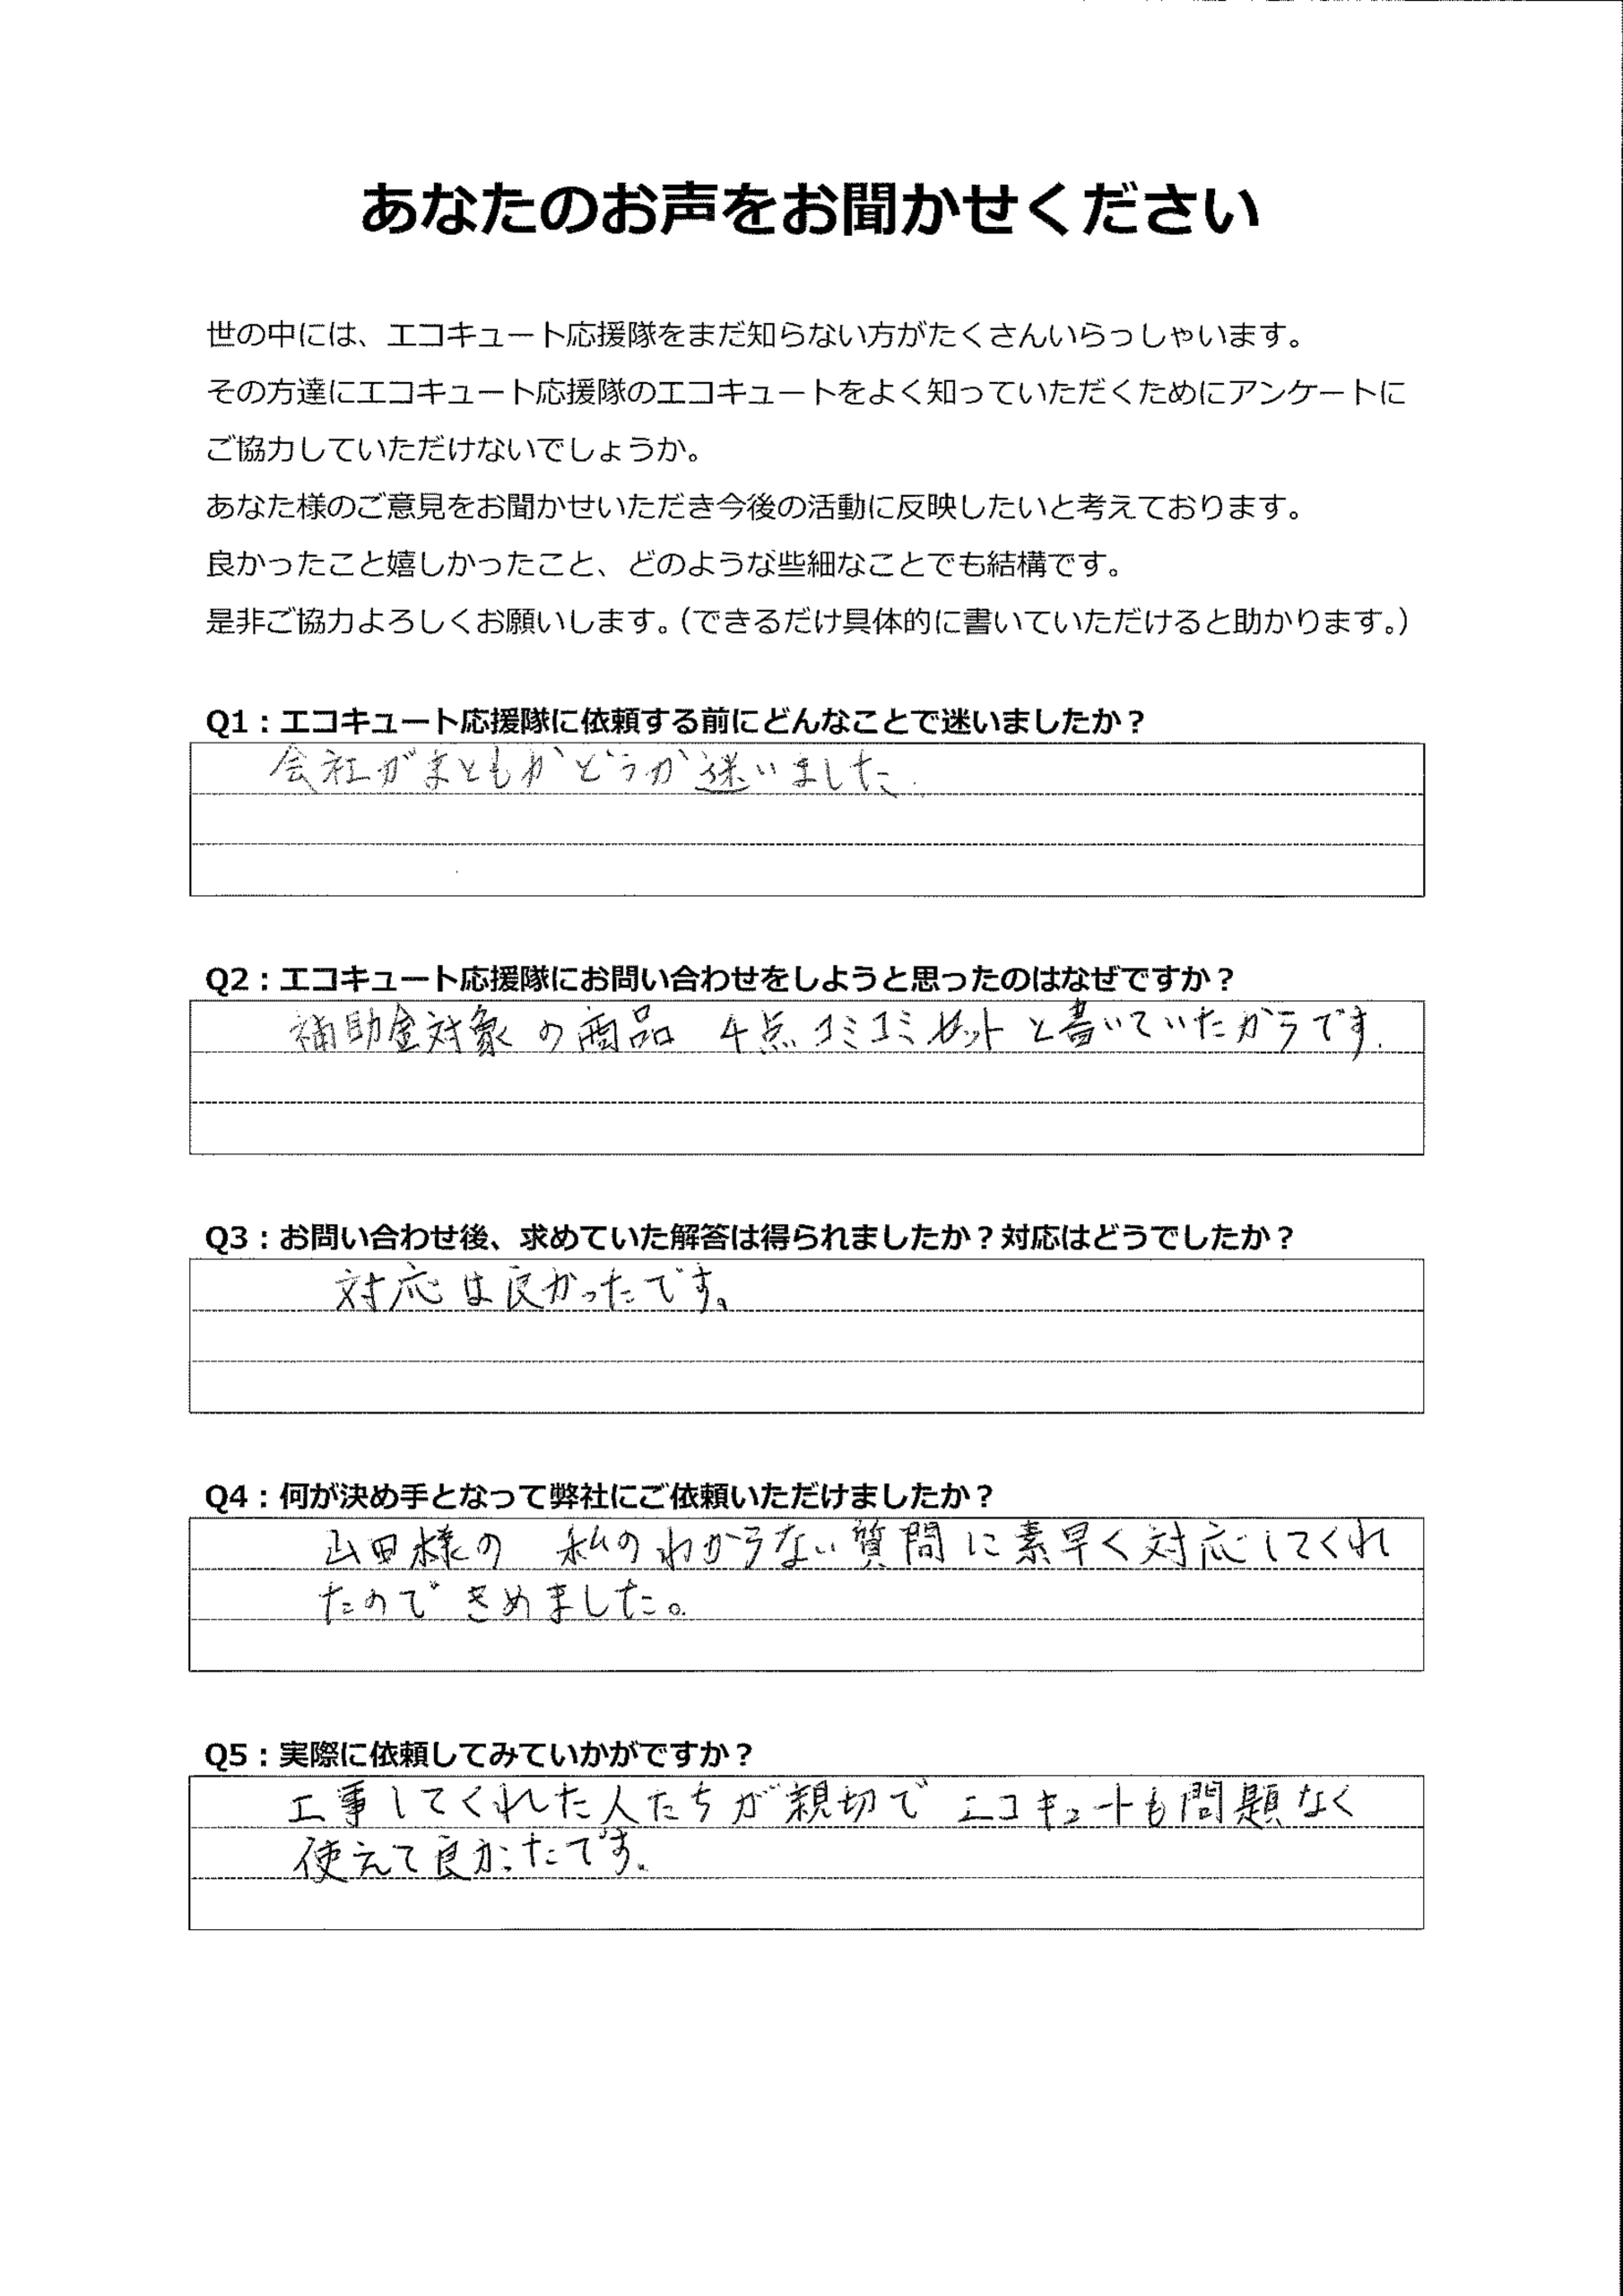 あなたのお声をお聞かせください
世の中には、エコキュート応援隊をまだ知らない方がたくさんいらっしゃいます。
その方達にエコキュート応援隊のエコキュートをよく知っていただくためにアンケートに
ご協力していただけないでしょうか。
あなた様のご意見をお聞かせいただき今後の活動に反映したいと考えております。
良かったこと嬉しかったこと、どのような些細なことでも結構です。
是非ご協力よろしくお願いします。（できるだけ具体的に書いていただけると助かります。）
Q1：エコキュート応援隊に依頼する前にどんなことで迷いましたか？
会社がまともかどうか迷いました.
Q2：エコキュート応援隊にお問い合わせをしようと思ったのはなぜですか？
補助金対象の商品 4点コミコミセットと書いていたからです.
Q3：お問い合わせ後、求めていた解答は得られましたか？対応はどうでしたか？
対応は良かったです。
Q4：何が決め手となって弊社にご依頼いただけましたか？
山田様の 私のわからない質問に素早く対応してくれ
たので きめました。
Q5：実際に依頼してみていかがですか？
工事してくれた人たちが親切で エコキュートも問題なく
使えて良かったです。